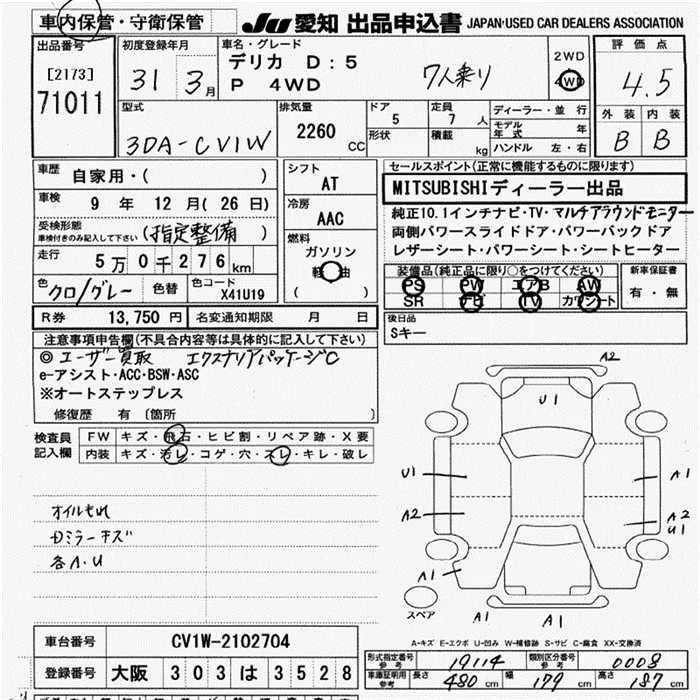 車内保管・守衛保管
JU 愛知 出品申込書 JAPAN・USED CAR DEALERS ASSOCIATION
出品番号
[2173]
71011
初度登録年月
31 3月
車名・グレード
デリカ D:5
P 4WD
7人乗り
2WD
4WD
評価点
4.5
外装 内装
B B
型式
3DA-CV1W
排気量
2260 CC
ドア
5
形状
定員
7 人
積載 kg
ディーラー・並行
モデル年式
ハンドル 左・右
車歴
自家用・( )
車検
9 年 12 月 (26 日)
受検形態
車検付きのみ記入して下さい
(指定整備)
走行
5万0千276km
色
クロ/グレー
色替
色コード
X41U19
シフト
AT
冷房
AAC
燃料
ガソリン
軽油
( )
セールスポイント(正常に機能するものに限ります)
MITSUBISHIディーラー出品
純正10.1インチナビ・TV・マルチアラウンドモニター
両側パワースライドドア・パワーバックドア
レザーシート・パワーシート・シートヒーター
装備品(純正品に限り○をつけてください)
PS PW エアB AW
SR ナビ TV カワシート
新車保証書
有・無
R券 13,750 円 名変通知期限 月 日
後日品
Sキー
注意事項申告欄(不具合内容等は具体的に記入して下さい)
◎ユーザー買取 エクステリアパッケージC
e-アシスト・ACC・BSW・ASC
※オートステップレス
修復歴 有 〔箇所
検査員
記入欄
FW キズ・飛石・ヒビ割・リペア跡・X要
内装 キズ・汚レ・コゲ・穴・スレ・キレ・破レ
オイルもれ
Dミラーキズ
各A.U
A2
U1
U1
A1
A2
A2
U1
A1
A1
A1
A1
スペア
A-キズ E-エクボ U-凹み W-補修跡 S-サビ C-腐食 XX-交換済
車台番号 CV1W-2102704
登録番号 大阪 303 は 3528
形式指定番号
参考
19114
類別区分番号
参考
0008
車庫証明用
参考
長さ 480 cm 幅 179 cm 高さ 187 cm